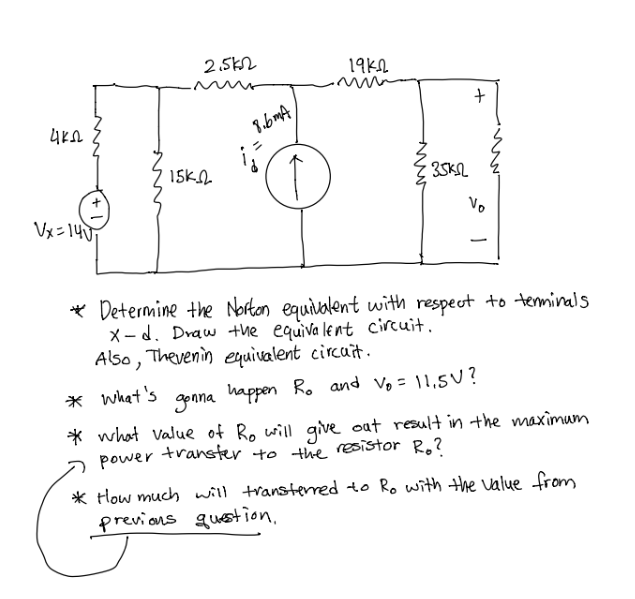 2.5kΩ
19kΩ
+
8.6mA
i_d =
4kΩ
15kΩ
35kΩ
+
−
V₀
Vx=14V
−
* Determine the Norton equivalent with respect to terminals
x–d. Draw the equivalent circuit.
Also, Thevenin equivalent circuit.
* What's gonna happen R₀ and V₀ = 11,5V?
* what value of R₀ will give out result in the maximum
power transfer to the resistor R₀?
* How much will transferred to R₀ with the value from
previous question.